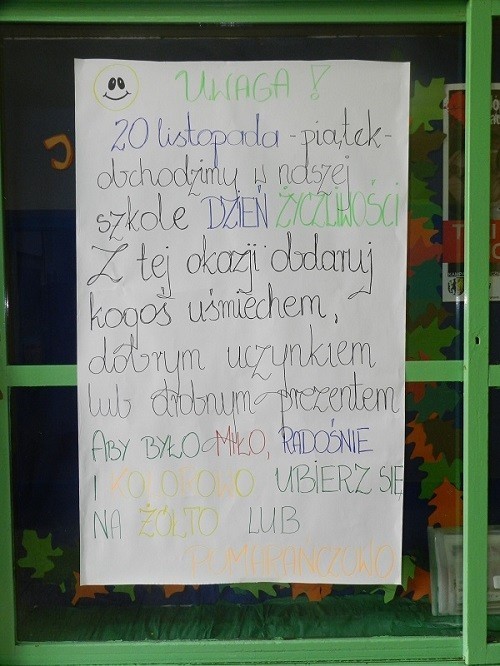 UWAGA !
20 listopada - piątek -
obchodzimy w naszej
szkole DZIEŃ ŻYCZLIWOŚCI
Z tej okazji obdaruj
kogoś uśmiechem,
dobrym uczynkiem
lub drobnym prezentem
ABY BYŁO MIŁO, RADOŚNIE
I KOLOROWO UBIERZ SIĘ
NA ŻÓŁTO LUB
POMARAŃCZOWO